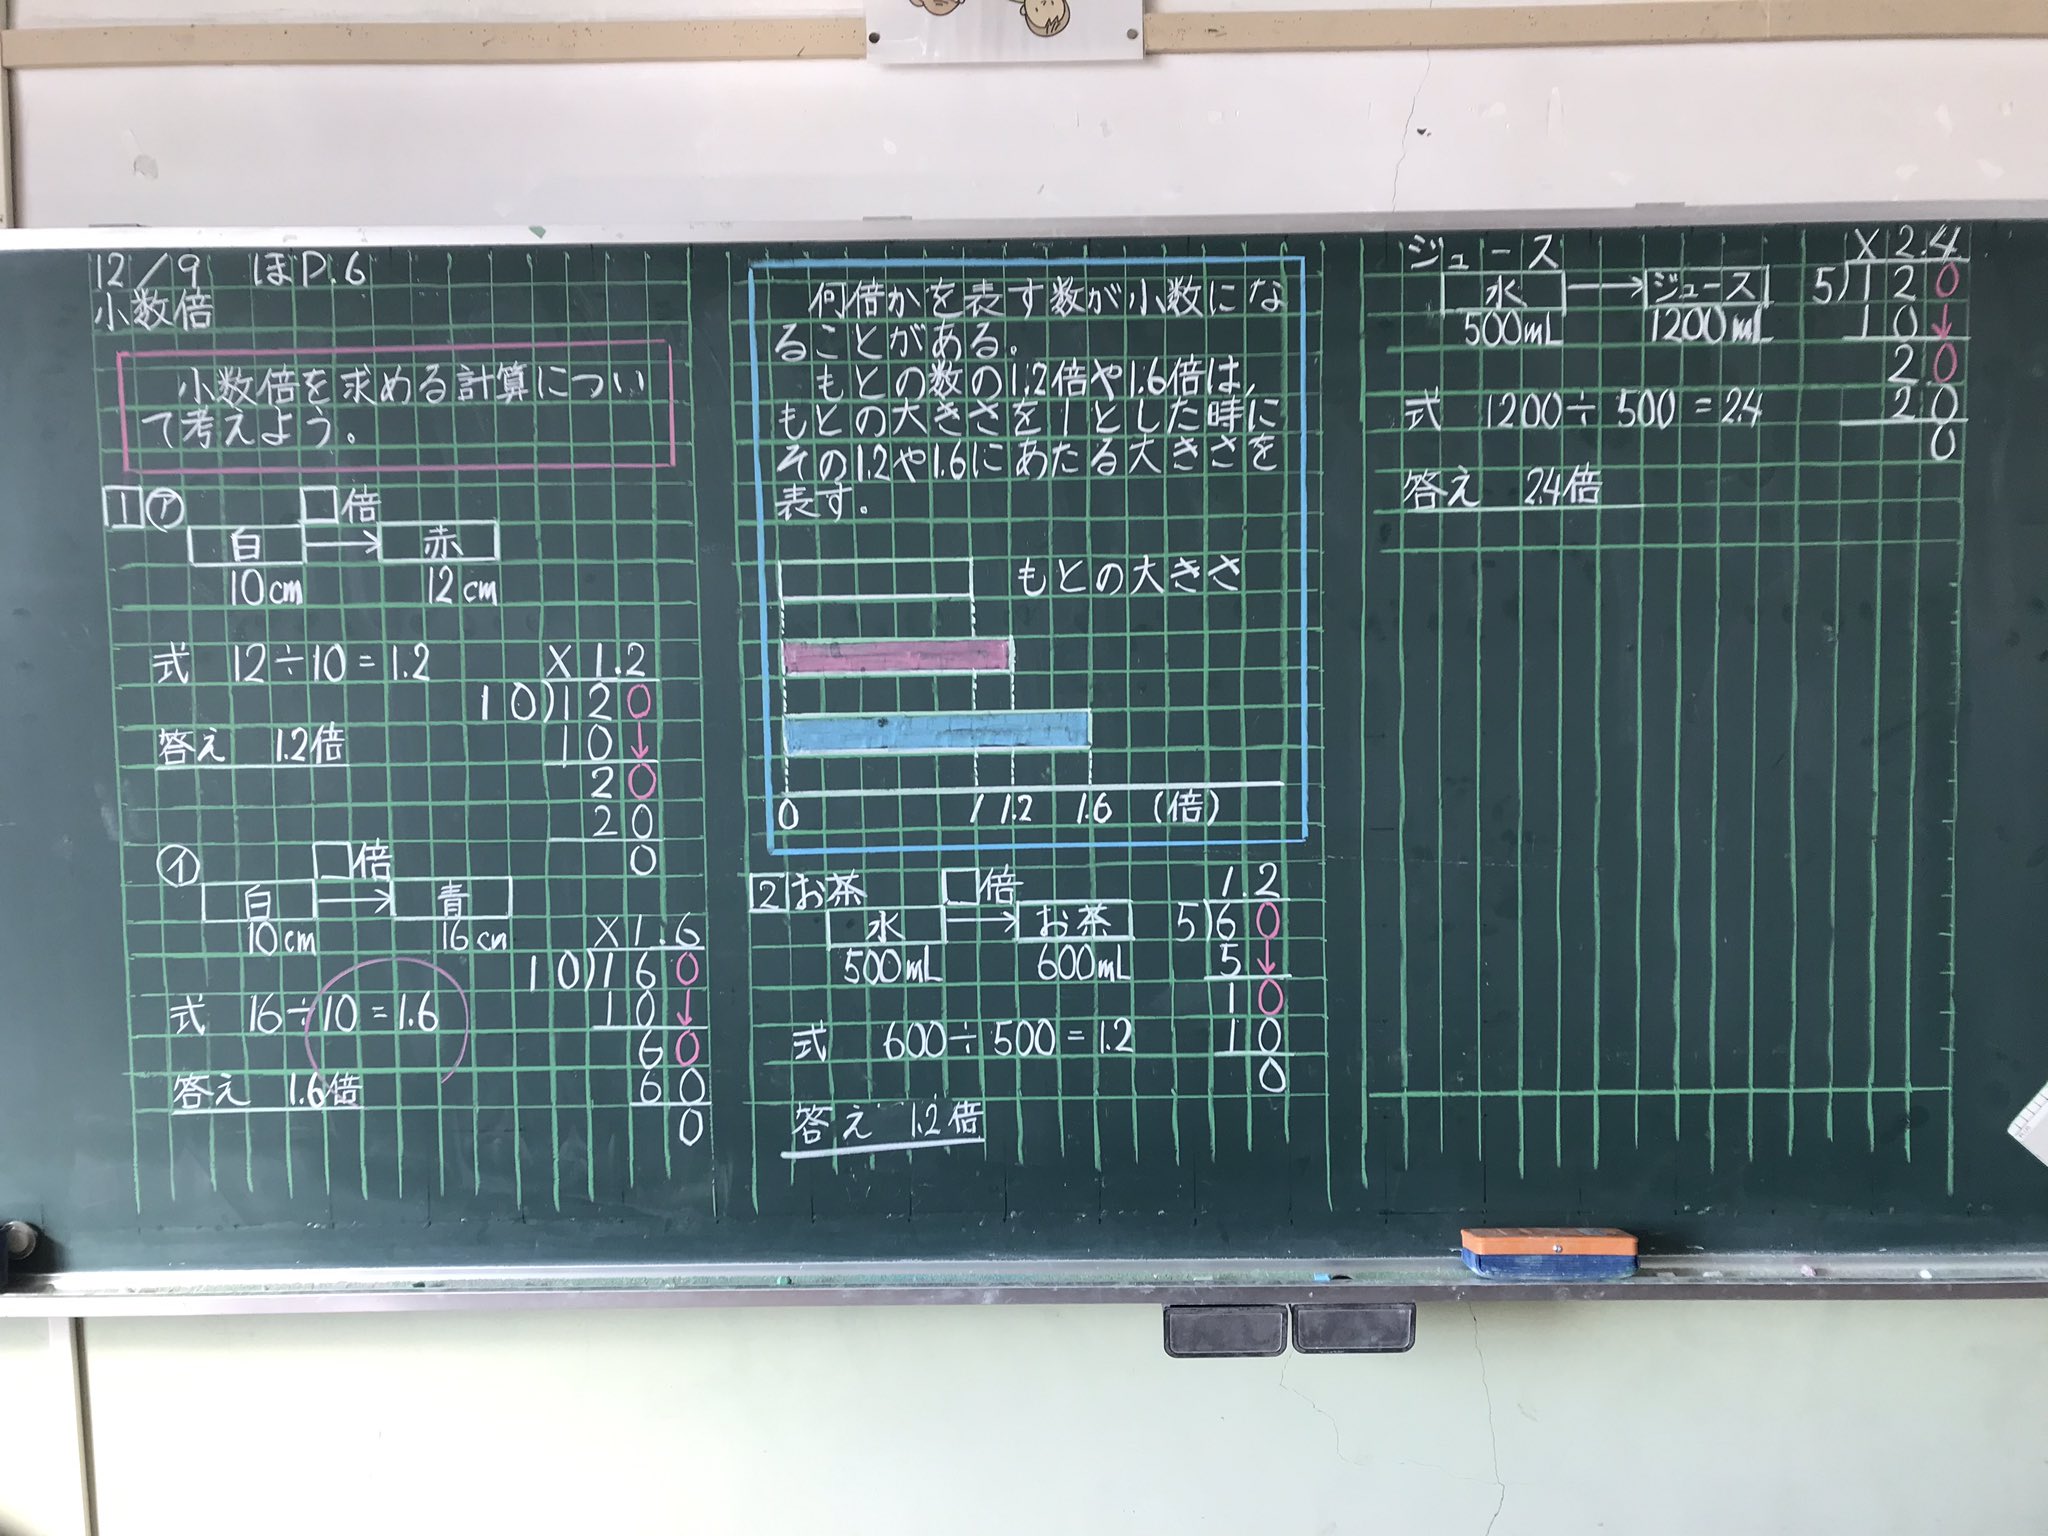 12/9 ほP.6
小数倍
小数倍を求める計算につい
て考えよう。
1 ㋐ □倍
白 → 赤
10cm 12cm
式 12÷10=1.2
答え 1.2倍
× 1.2
10)120
10↓
20
20
0
㋑ □倍
白 → 青
10cm 16cm
式 16÷10=1.6
答え 1.6倍
×1.6
10)160
10↓
60
60
0
何倍かを表す数が小数にな
ることがある。
もとの数の1.2倍や1.6倍は,
もとの大きさを1とした時に
その1.2や1.6にあたる大きさを
表す。
もとの大きさ
0 1 1.2 1.6 (倍)
2 お茶 □倍
水 → お茶
500mL 600mL
式 600÷500=1.2
答え 1.2倍
1.2
5)60
5↓
10
10
0
ジュース
水 → ジュース
500mL 1200mL
式 1200÷500=2.4
答え 2.4倍
×2.4
5)120
10↓
20
20
0